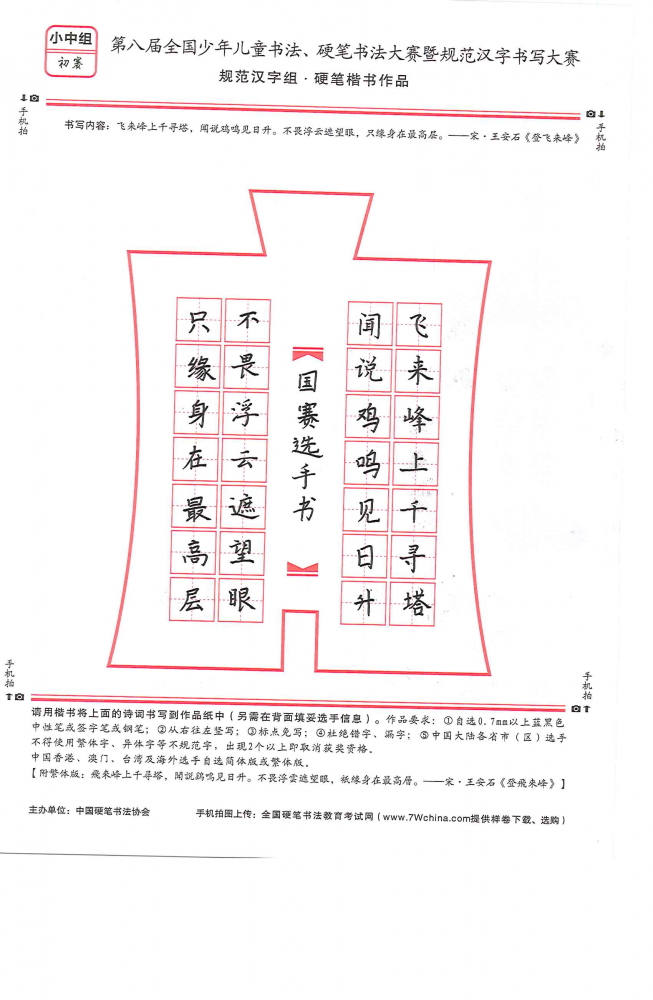 小中组
初赛
第八届全国少年儿童书法、硬笔书法大赛暨规范汉字书写大赛
规范汉字组·硬笔楷书作品
手机拍
手机拍
书写内容：飞来峰上千寻塔，闻说鸡鸣见日升。不畏浮云遮望眼，只缘身在最高层。——宋·王安石《登飞来峰》
飞来峰上千寻塔
闻说鸡鸣见日升
国赛选手书
不畏浮云遮望眼
只缘身在最高层
手机拍
手机拍
请用楷书将上面的诗词书写到作品纸中（另需在背面填妥选手信息）。作品要求：①自选0.7mm以上蓝黑色
中性笔或签字笔或钢笔；②从右往左竖写；③标点免写；④杜绝错字、漏字；⑤中国大陆各省市（区）选手
不得使用繁体字、异体字等不规范字，出现2个以上即取消获奖资格。
中国香港、澳门、台湾及海外选手自选简体版或繁体版。
【附繁体版：飛来峰上千尋塔，聞説鷄鳴見日升。不畏浮雲遮望眼，祇缘身在最高層。——宋·王安石《登飛来峰》】
主办单位：中国硬笔书法协会
手机拍图上传：全国硬笔书法教育考试网（www.7Wchina.com提供样卷下载、选购）